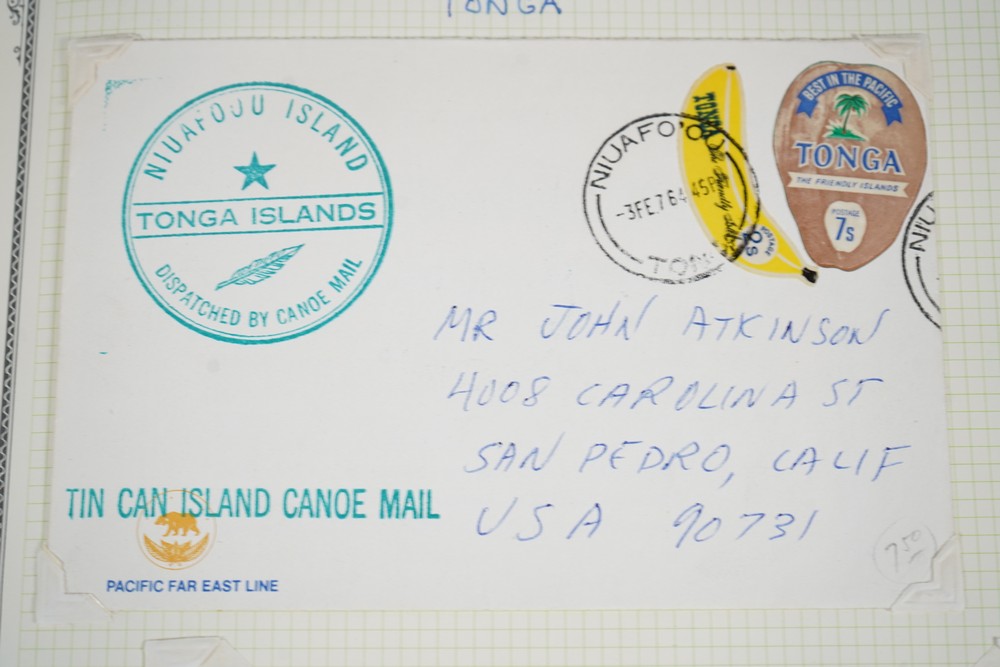 TONGA
NIUAFOJU ISLAND
TONGA ISLANDS
DISPATCHED BY CANOE MAIL
NIUAFO'O
-3FE76 445P
TONGA
The Friendly Islands
POSTAGE
2s
BEST IN THE PACIFIC
TONGA
THE FRIENDLY ISLANDS
POSTAGE
7s
NIU
MR JOHN ATKINSON
4008 CAROLINA ST
SAN PEDRO, CALIF
USA 90731
TIN CAN ISLAND CANOE MAIL
PACIFIC FAR EAST LINE
7.50